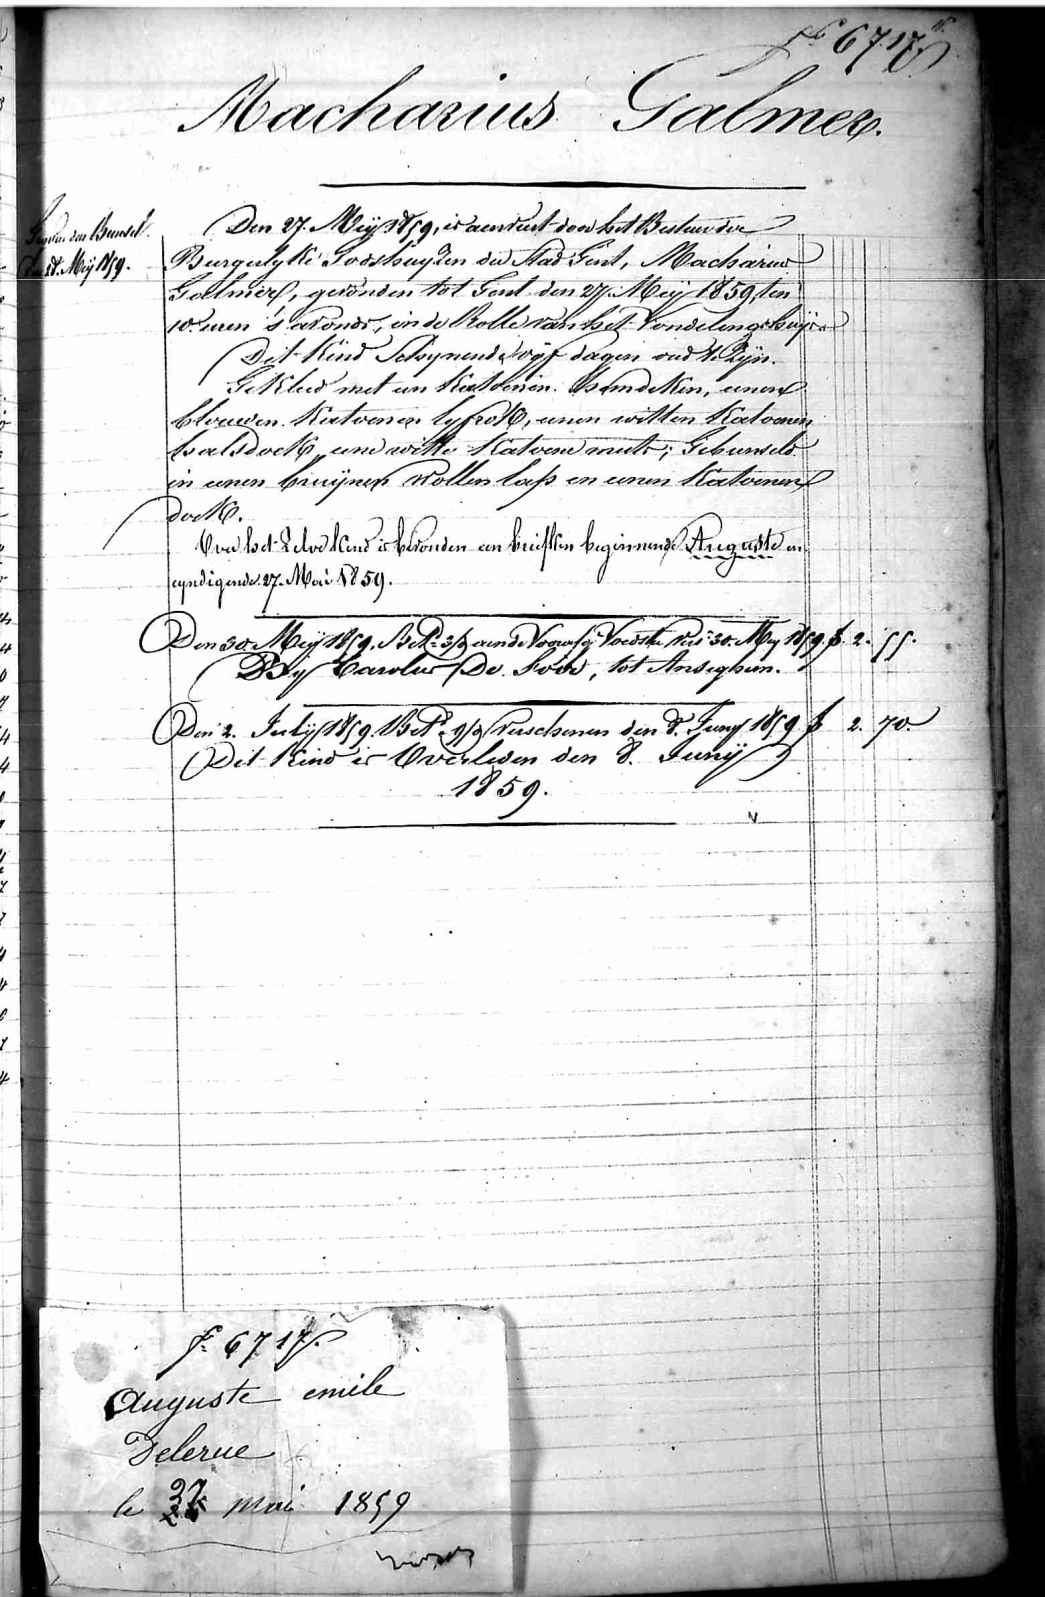 f° 6717.
Macharius Galmer.
den 28. Meÿ 1859.
Den 27. Meÿ 1859, is aenveert door het Bestuur der
Burgerlyke Godshuyzen der stad Gent, Macharius
Galmer, gevonden tot Gent den 27 Meÿ 1859, ten
10. uren 's avonds, in de Rolle van het Vondelingshuys.
Dit Kind schynende vyf dagen oud te zyn.
Gekleed met een Katoenen hemdeken, eenen
blauwen Katoenen lyfrok, eenen witten Katoenen
halsdoek, eene witte Katoene muts; Gebunseld
in eenen bruynen wollen lap en eenen Katoenen
doek.
Over het zelve Kind is bevonden een briefken beginnende Auguste en
eyndigende 27. Mai 1859.
Den 30. Meÿ 1859. Bet. 3/9 30. Mey 1859. f 2. 55.
By Carolus De , tot Anseghem.
Den 2. Julÿ 1859. Bet. 9/9 verschenen den 8. Juny 1859 f 2. 70.
Dit Kind is Overleden den 8. Junÿ
1859.
f° 6717.
Auguste emile
Delerue
le 27 mai 1859